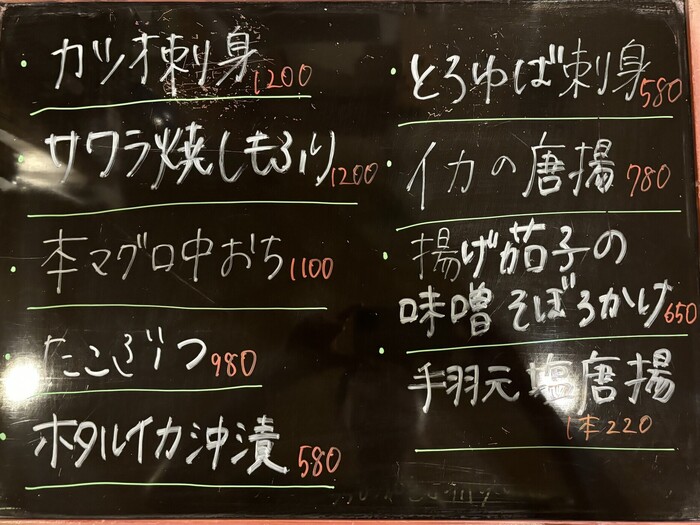 ・カツオ刺身 1200
・サワラ焼しもふり 1200
・本マグロ中おち 1100
・たこぶつ 980
・ホタルイカ沖漬 580
・とろゆば刺身 580
・イカの唐揚 780
・揚げ茄子の
味噌そぼろかけ 650
・手羽元塩唐揚
1本220